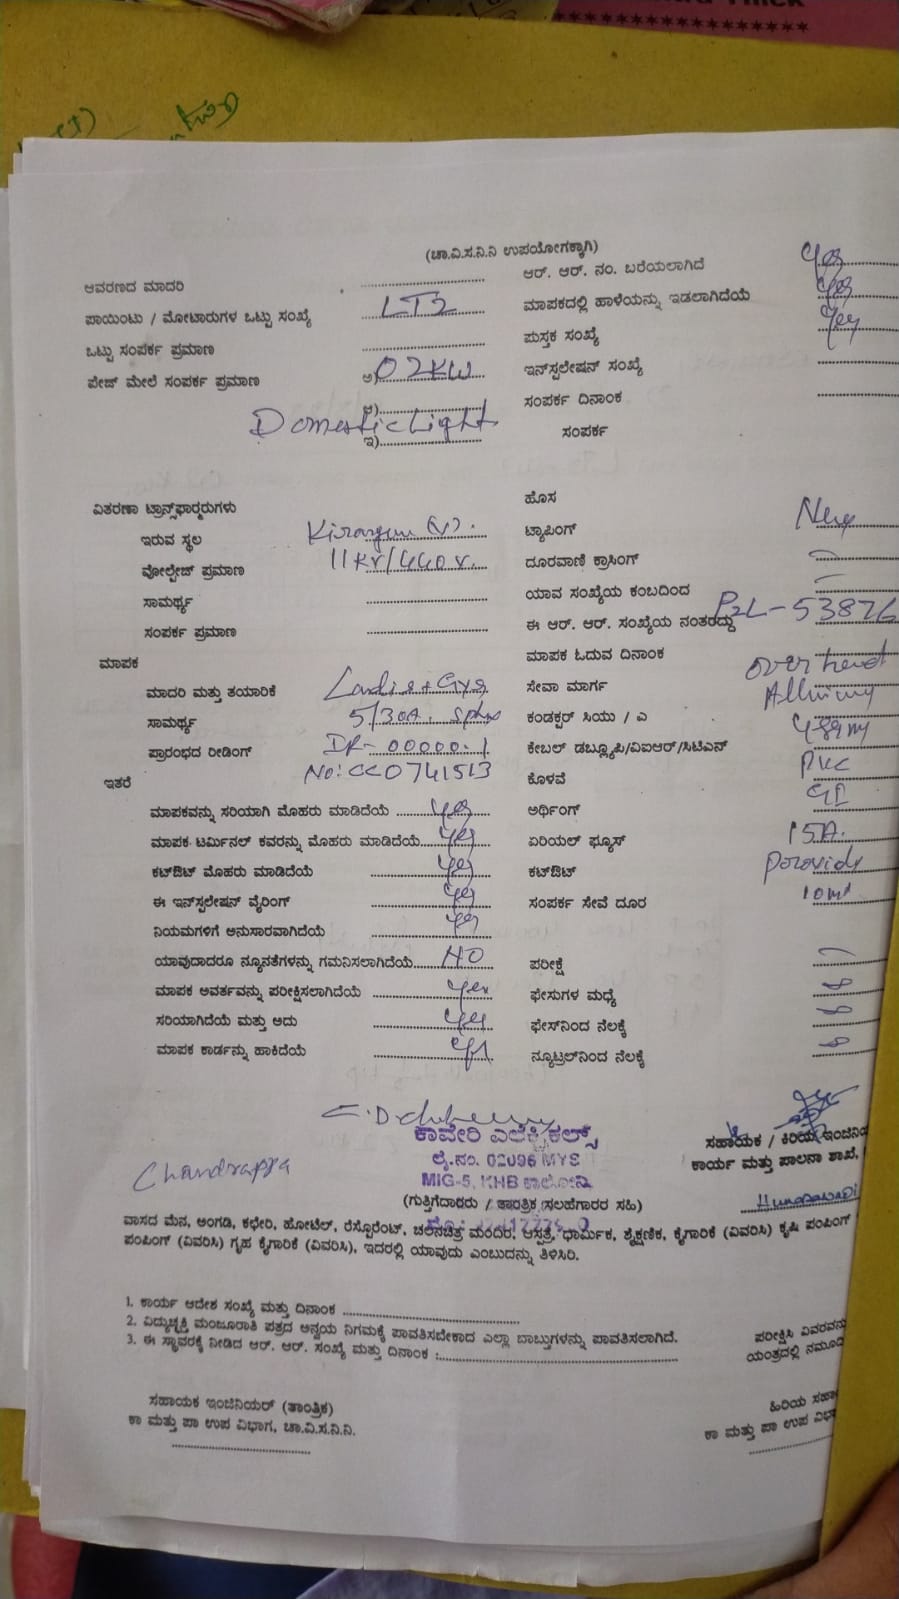 (ಚಾ.ವಿ.ಸ.ನಿ.ನಿ ಉಪಯೋಗಕ್ಕಾಗಿ)
ಆವರಣದ ಮಾದರಿ
ಆರ್. ಆರ್. ನಂ. ಬರೆಯಲಾಗಿದೆ Yes
ಪಾಯಿಂಟು / ಮೋಟಾರುಗಳ ಒಟ್ಟು ಸಂಖ್ಯೆ LT2
ಮಾಪಕದಲ್ಲಿ ಹಾಳೆಯನ್ನು ಇಡಲಾಗಿದೆಯೆ Yes
ಒಟ್ಟು ಸಂಪರ್ಕ ಪ್ರಮಾಣ
ಪುಸ್ತಕ ಸಂಖ್ಯೆ Yes
ಪೇಜ್ ಮೇಲೆ ಸಂಪರ್ಕ ಪ್ರಮಾಣ ಅ) 02KW
ಇನ್‌ಸ್ಪಲೇಷನ್ ಸಂಖ್ಯೆ
ಆ)
ಸಂಪರ್ಕ ದಿನಾಂಕ
Domestic Light
ಇ)
ಸಂಪರ್ಕ
ವಿತರಣಾ ಟ್ರಾನ್ಸ್‌ಫಾರ್‍ಮರುಗಳು
ಹೊಸ
ಇರುವ ಸ್ಥಲ (V).
ಟ್ಯಾಪಿಂಗ್ New
ವೋಲ್ಟೇಜ್ ಪ್ರಮಾಣ 11KV/440V.
ದೂರವಾಣಿ ಕ್ರಾಸಿಂಗ್
ಸಾಮರ್ಥ್ಯ
ಯಾವ ಸಂಖ್ಯೆಯ ಕಂಬದಿಂದ
ಸಂಪರ್ಕ ಪ್ರಮಾಣ
ಈ ಆರ್. ಆರ್. ಸಂಖ್ಯೆಯ ನಂತರದ್ದು P2L-53876
ಮಾಪಕ
ಮಾಪಕ ಓದುವ ದಿನಾಂಕ
ಮಾದರಿ ಮತ್ತು ತಯಾರಿಕೆ Landis+Gyr
ಸೇವಾ ಮಾರ್ಗ over head
ಸಾಮರ್ಥ್ಯ 5/30A.
ಕಂಡಕ್ಟರ್ ಸಿಯು / ಎ
ಪ್ರಾರಂಭದ ರೀಡಿಂಗ್ IR-00000.1
ಕೇಬಲ್ ಡಬ್ಲ್ಯೂಪಿ/ವಿಐಆರ್/ಸಿಟಿಎನ್
ಇತರೆ No: CC0741513
ಕೊಳವೆ PVC
ಮಾಪಕವನ್ನು ಸರಿಯಾಗಿ ಮೊಹರು ಮಾಡಿದೆಯೆ Yes
ಅರ್ಥಿಂಗ್ GI
ಮಾಪಕ ಟರ್ಮಿನಲ್ ಕವರನ್ನು ಮೊಹರು ಮಾಡಿದೆಯೆ Yes
ಏರಿಯಲ್ ಫ್ಯೂಸ್ 15A.
ಕಟ್‌ಔಟ್ ಮೊಹರು ಮಾಡಿದೆಯೆ Yes
ಕಟ್‌ಔಟ್
ಈ ಇನ್‌ಸ್ಪಲೇಷನ್ ವೈರಿಂಗ್ Yes
ಸಂಪರ್ಕ ಸೇವೆ ದೂರ
ನಿಯಮಗಳಿಗೆ ಅನುಸಾರವಾಗಿದೆಯೆ Yes
ಯಾವುದಾದರೂ ನ್ಯೂನತೆಗಳನ್ನು ಗಮನಿಸಲಾಗಿದೆಯೆ NO
ಪರೀಕ್ಷೆ
ಮಾಪಕ ಅವರ್ತವನ್ನು ಪರೀಕ್ಷಿಸಲಾಗಿದೆಯೆ Yes
ಫೇಸುಗಳ ಮಧ್ಯೆ
ಸರಿಯಾಗಿದೆಯೆ ಮತ್ತು ಅದು Yes
ಫೇಸ್‌ನಿಂದ ನೆಲಕ್ಕೆ
ಮಾಪಕ ಕಾರ್ಡನ್ನು ಹಾಕಿದೆಯೆ Yes
ನ್ಯೂಟ್ರಲ್‌ನಿಂದ ನೆಲಕ್ಕೆ
ಕಾವೇರಿ ಎಲೆಕ್ಟ್ರಿಕಲ್ಸ್
ಲೈ.ನಂ. 02096 MYS
MIG-5, KHB ಕಾಲೋನಿ
Chandrappa
(ಗುತ್ತಿಗೆದಾರರು / ತಾಂತ್ರಿಕ ಸಲಹೆಗಾರರ ಸಹಿ)
ಸಹಾಯಕ / ಕಿರಿಯ ಇಂಜಿನಿಯ
ಕಾರ್ಯ ಮತ್ತು ಪಾಲನಾ ಶಾಖೆ,
ವಾಸದ ಮನೆ, ಅಂಗಡಿ, ಕಛೇರಿ, ಹೋಟೆಲ್, ರೆಸ್ಟೋರೆಂಟ್, ಚಲನಚಿತ್ರ ಮಂದಿರ, ಆಸ್ಪತ್ರೆ, ಧಾರ್ಮಿಕ, ಶೈಕ್ಷಣಿಕ, ಕೈಗಾರಿಕೆ (ವಿವರಿಸಿ) ಕೃಷಿ ಪಂಪಿಂಗ್
ಪಂಪಿಂಗ್ (ವಿವರಿಸಿ) ಗೃಹ ಕೈಗಾರಿಕೆ (ವಿವರಿಸಿ), ಇದರಲ್ಲಿ ಯಾವುದು ಎಂಬುದನ್ನು ತಿಳಿಸಿರಿ.
1. ಕಾರ್ಯ ಆದೇಶ ಸಂಖ್ಯೆ ಮತ್ತು ದಿನಾಂಕ
2. ವಿದ್ಯುಚ್ಛಕ್ತಿ ಮಂಜೂರಾತಿ ಪತ್ರದ ಅನ್ವಯ ನಿಗಮಕ್ಕೆ ಪಾವತಿಸಬೇಕಾದ ಎಲ್ಲಾ ಬಾಬ್ತುಗಳನ್ನು ಪಾವತಿಸಲಾಗಿದೆ.
3. ಈ ಸ್ಥಾವರಕ್ಕೆ ನೀಡಿದ ಆರ್. ಆರ್. ಸಂಖ್ಯೆ ಮತ್ತು ದಿನಾಂಕ :
ಪರೀಕ್ಷಿಸಿ ವಿವರವನ್ನು
ಯಂತ್ರದಲ್ಲಿ ನಮೂದಿ
ಸಹಾಯಕ ಇಂಜಿನಿಯರ್ (ತಾಂತ್ರಿಕ)
ಕಾ ಮತ್ತು ಪಾ ಉಪ ವಿಭಾಗ, ಚಾ.ವಿ.ಸ.ನಿ.ನಿ.
ಹಿರಿಯ ಸಹಾ
ಕಾ ಮತ್ತು ಪಾ ಉಪ ವಿಭಾ